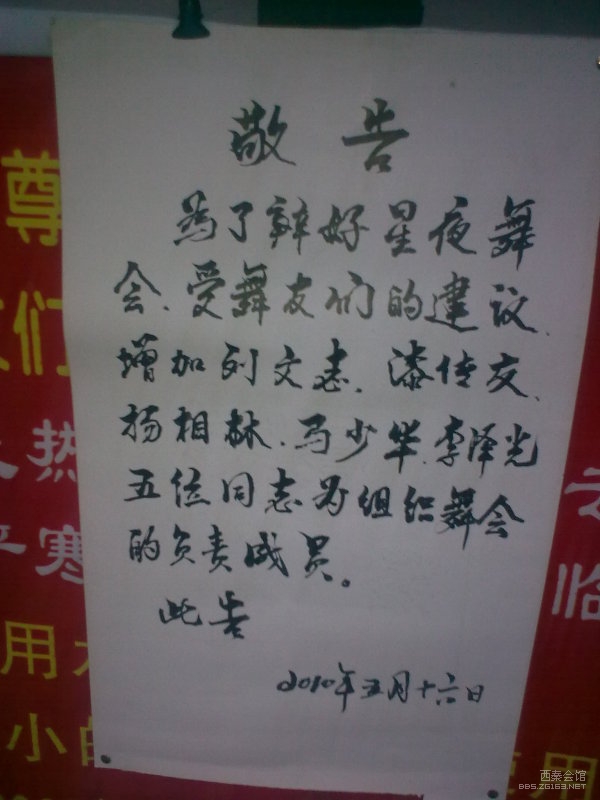 敬告
為了辦好星夜舞
会、受舞友们的建议、
增加列文志、漆传友、
杨相林、马少华、李泽光
五位同志为组织舞会
的负责成员。
此告
2010年五月十六日
尊
们
热
寒
用
小的
临
用
西秦会馆
BBS.ZG163.NET